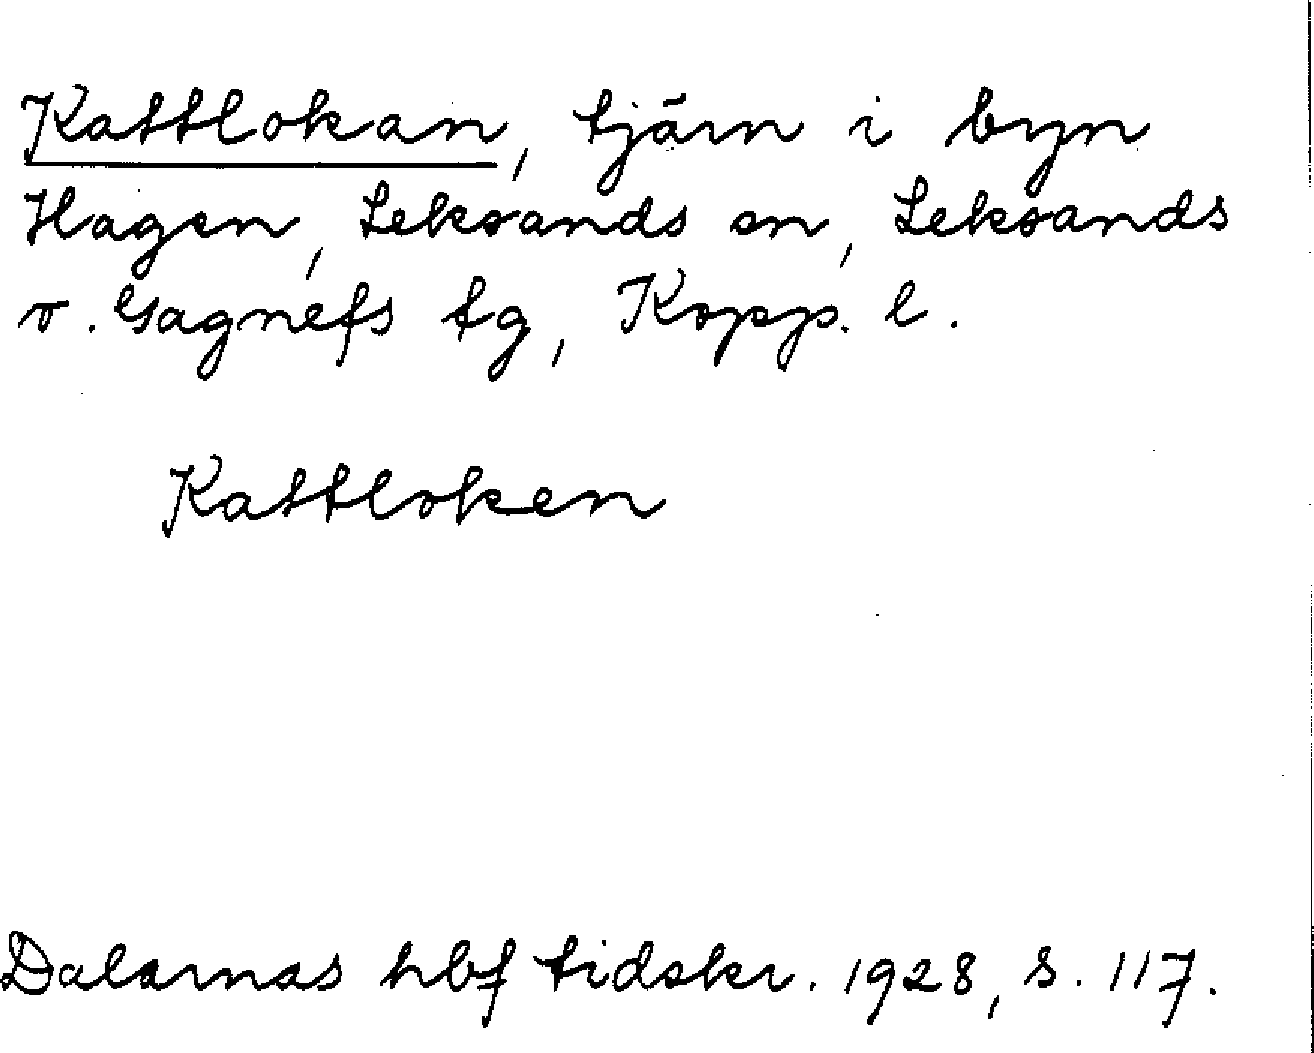 Kattlokan, tjärn i byn
Hagen, Leksands sn, Leksands
o. Gagnefs tg, Kopp. l.
Kattloken
Dalarnas hbf tidskr. 1928, s. 117.